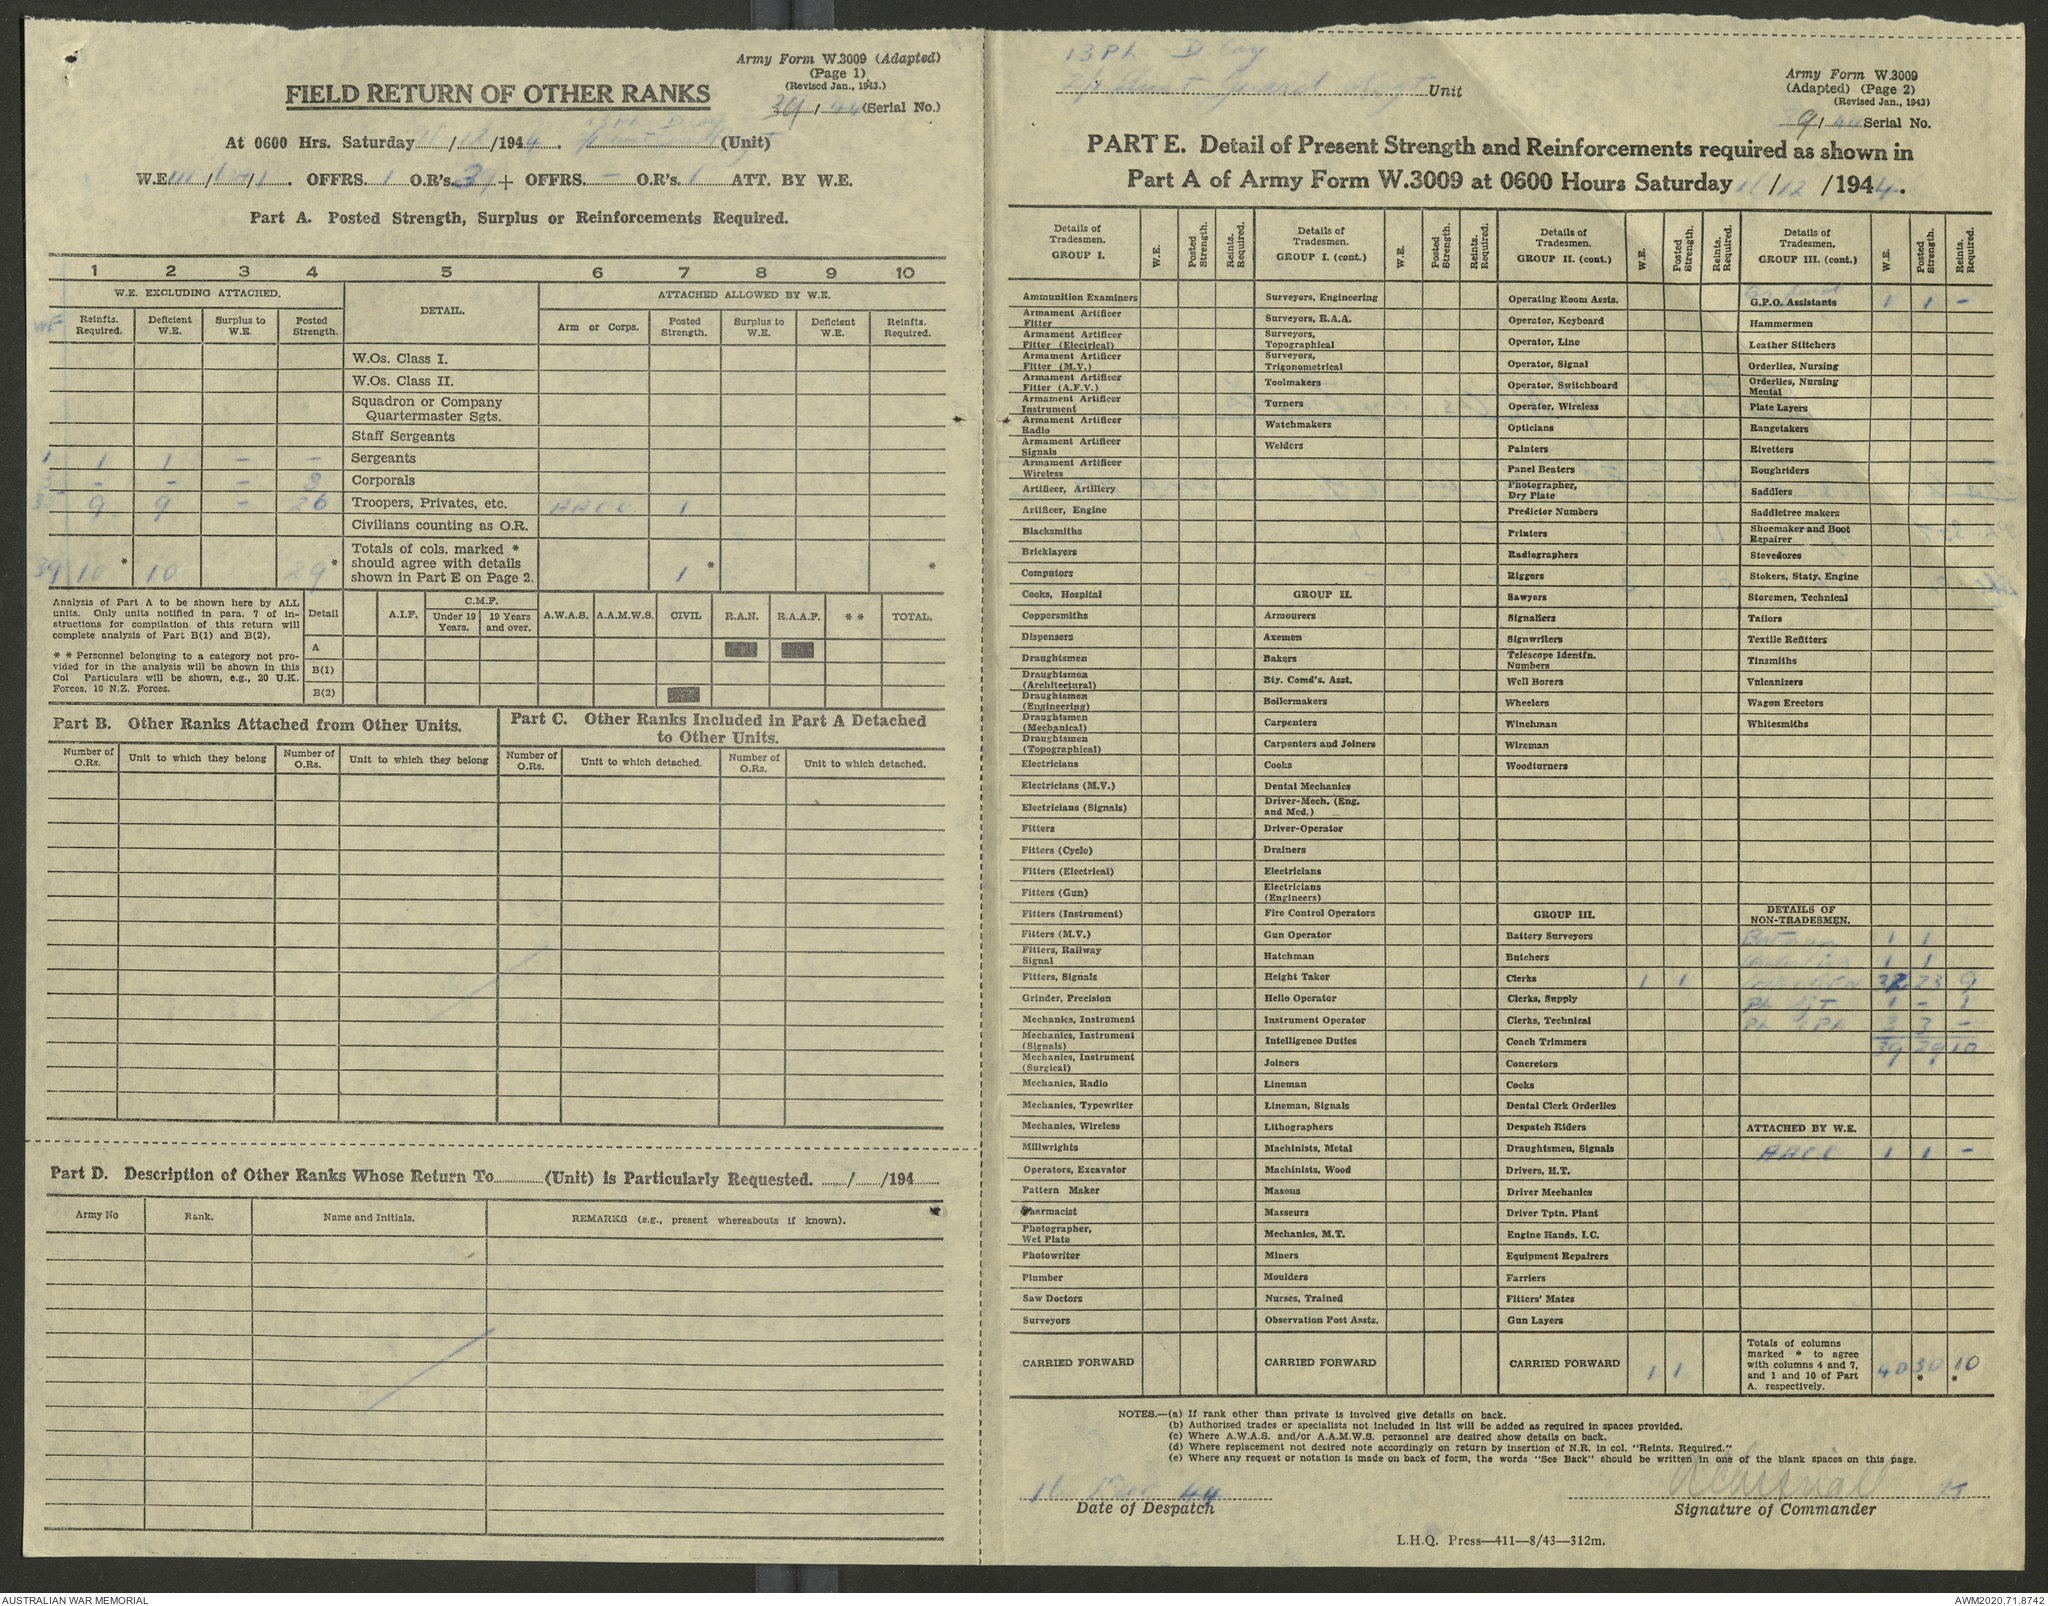 Army Form W.3009 (Adapted)
(Page 1)
(Revised Jan., 1943.)
FIELD RETURN OF OTHER RANKS
39 / 44 (Serial No.)
13 Pl D Coy
At 0600 Hrs. Saturday / 12 /1944. (Unit)
W.E. III / / 1. OFFRS. 1 O.R's. 39 + OFFRS. - O.R's. 1 ATT. BY W.E.
Part A. Posted Strength, Surplus or Reinforcements Required.
1 2 3 4 5 6 7 8 9 10
W.E. EXCLUDING ATTACHED. DETAIL. ATTACHED ALLOWED BY W.E.
WE Reinfts. Required. Deficient W.E. Surplus to W.E. Posted Strength. Arm or Corps. Posted Strength. Surplus to W.E. Deficient W.E. Reinfts. Required.
W.Os. Class I.
W.Os. Class II.
Squadron or Company Quartermaster Sgts.
Staff Sergeants
1 1 1 - - Sergeants
3 - - - 3 Corporals
35 9 9 - 26 Troopers, Privates, etc. AACC 1
Civilians counting as O.R.
39 10 * 10 29 * Totals of cols. marked * should agree with details shown in Part E on Page 2. 1 * *
Analysis of Part A to be shown here by ALL units. Only units notified in para. 7 of instructions for compilation of this return will complete analysis of Part B(1) and B(2).
* * Personnel belonging to a category not provided for in the analysis will be shown in this Col Particulars will be shown, e.g., 20 U.K. Forces, 10 N.Z. Forces.
Detail A.I.F. C.M.F. Under 19 Years. 19 Years and over. A.W.A.S. A.A.M.W.S. CIVIL R.A.N. R.A.A.F. * * TOTAL.
A
B(1)
B(2)
Part B. Other Ranks Attached from Other Units.
Part C. Other Ranks Included in Part A Detached to Other Units.
Number of O.Rs. Unit to which they belong Number of O.Rs. Unit to which they belong Number of O.Rs. Unit to which detached. Number of O.Rs. Unit to which detached.
Part D. Description of Other Ranks Whose Return To (Unit) is Particularly Requested. / /194
Army No Rank. Name and Initials. REMARKS (e.g., present whereabouts if known).
13 Pl D Coy
Unit
Army Form W.3009
(Adapted) (Page 2)
(Revised Jan., 1943)
39 / 44 Serial No.
PART E. Detail of Present Strength and Reinforcements required as shown in
Part A of Army Form W.3009 at 0600 Hours Saturday / 12 /1944.
Details of Tradesmen. GROUP I. W.E. Posted Strength. Reints. Required.
Ammunition Examiners
Armament Artificer Fitter
Armament Artificer Fitter (Electrical)
Armament Artificer Fitter (M.V.)
Armament Artificer Fitter (A.F.V.)
Armament Artificer Instrument
Armament Artificer Radio
Armament Artificer Signals
Armament Artificer Wireless
Artificer, Artillery
Artificer, Engine
Blacksmiths
Bricklayers
Computors
Cooks, Hospital
Coppersmiths
Dispensers
Draughtsmen
Draughtsmen (Architectural)
Draughtsmen (Engineering)
Draughtsmen (Mechanical)
Draughtsmen (Topographical)
Electricians
Electricians (M.V.)
Electricians (Signals)
Fitters
Fitters (Cycle)
Fitters (Electrical)
Fitters (Gun)
Fitters (Instrument)
Fitters (M.V.)
Fitters, Railway Signal
Fitters, Signals
Grinder, Precision
Mechanics, Instrument
Mechanics, Instrument (Signals)
Mechanics, Instrument (Surgical)
Mechanics, Radio
Mechanics, Typewriter
Mechanics, Wireless
Millwrights
Operators, Excavator
Pattern Maker
Pharmacist
Photographer, Wet Plate
Photowriter
Plumber
Saw Doctors
Surveyors
CARRIED FORWARD
Details of Tradesmen. GROUP I. (cont.) W.E. Posted Strength. Reints. Required.
Surveyors, Engineering
Surveyors, R.A.A.
Surveyors, Topographical
Surveyors, Trigonometrical
Toolmakers
Turners
Watchmakers
Welders
GROUP II.
Armourers
Axemen
Bakers
Bty. Comd's. Asst.
Boilermakers
Carpenters
Carpenters and Joiners
Cooks
Dental Mechanics
Driver-Mech. (Eng. and Med.)
Driver-Operator
Drainers
Electricians
Electricians (Engineers)
Fire Control Operators
Gun Operator
Hatchman
Height Taker
Helio Operator
Instrument Operator
Intelligence Duties
Joiners
Lineman
Lineman, Signals
Lithographers
Machinists, Metal
Machinists, Wood
Masons
Masseurs
Mechanics, M.T.
Miners
Moulders
Nurses, Trained
Observation Post Assts.
CARRIED FORWARD
Details of Tradesmen. GROUP II. (cont.) W.E. Posted Strength. Reints. Required.
Operating Room Assts.
Operator, Keyboard
Operator, Line
Operator, Signal
Operator, Switchboard
Operator, Wireless
Opticians
Painters
Panel Beaters
Photographer, Dry Plate
Predictor Numbers
Printers
Radiographers
Riggers
Sawyers
Signallers
Signwriters
Telescope Identfn. Numbers
Well Borers
Wheelers
Winchman
Wireman
Woodturners
GROUP III.
Battery Surveyors
Butchers
Clerks 1 1
Clerks, Supply
Clerks, Technical
Coach Trimmers
Concretors
Cooks
Dental Clerk Orderlies
Despatch Riders
Draughtsmen, Signals
Drivers, H.T.
Driver Mechanics
Driver Tptn. Plant
Engine Hands, I.C.
Equipment Repairers
Farriers
Fitters' Mates
Gun Layers
CARRIED FORWARD 1 1
Details of Tradesmen. GROUP III. (cont.) W.E. Posted Strength. Reints. Required.
G.P.O. Assistants 1 1 -
Hammermen
Leather Stitchers
Orderlies, Nursing
Orderlies, Nursing Mental
Plate Layers
Rangetakers
Rivetters
Roughriders
Saddlers
Saddletree makers
Shoemaker and Boot Repairer
Stevedores
Stokers, Staty. Engine
Storemen, Technical
Tailors
Textile Refitters
Tinsmiths
Vulcanizers
Wagon Erectors
Whitesmiths
DETAILS OF NON-TRADESMEN.
Batman 1 1
1 1
32 23 9
Pl Sjt 1 - 1
3 3 -
39 29 10
ATTACHED BY W.E.
AACC 1 1 -
Totals of columns marked * to agree with columns 4 and 7, and 1 and 10 of Part A, respectively. 40 30 * 10 *
NOTES.—(a) If rank other than private is involved give details on back.
(b) Authorised trades or specialists not included in list will be added as required in spaces provided.
(c) Where A.W.A.S. and/or A.A.M.W.S. personnel are desired show details on back.
(d) Where replacement not desired note accordingly on return by insertion of N.R. in col. "Reints. Required."
(e) Where any request or notation is made on back of form, the words "See Back" should be written in one of the blank spaces on this page.
Dec 44
Date of Despatch
Lt
Signature of Commander
L.H.Q. Press—411—8/43—312m.
AUSTRALIAN WAR MEMORIAL
AWM2020.71.8742